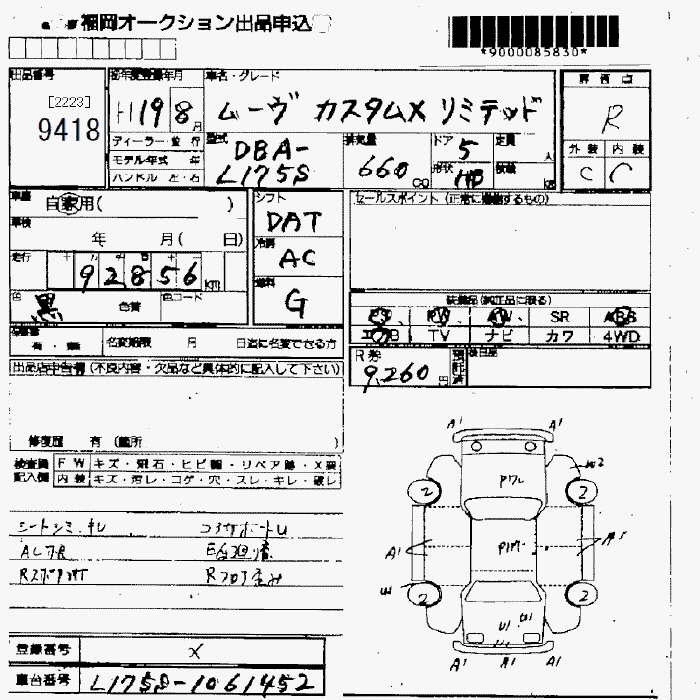 福岡オークション出品申込
*9000085830*
出品番号 初年度登録年月 車名・グレード 評価点
[2223]
9418
H19 8月 ムーヴ カスタムX リミテッド R
ディーラー・並行 型式 排気量 ドア 定員 外装 内装
モデル年式 年 DBA- 660 5 人 C C
ハンドル 左・右 L175S CC 形状 HB 積載 kg
車歴 自家用( ) シフト セールスポイント(正常に機能するもの)
車検 年 月( 日) DAT
走行 冷房 AC
92856 km
色 黒 色替 色コード 燃料 G 装備品(純正品に限る)
PS PW AW SR ABS
エアB TV ナビ カワ 4WD
有・無 名変期限 月 日迄に名変できる方 R券 預託済 後日品
9,260円
出品店申告欄(不良内容・欠品など具体的に記入して下さい)
修復歴 有(箇所 )
検査員 FW キズ・飛石・ヒビ割・リペア跡・X要
記入欄 内装 キズ・汚レ・コゲ・穴・スレ・キレ・破レ
A1 A1
W2
2 2
A1
W
2 2
U1
A1 A1 A1
登録番号 X
車台番号 L175S-1061452